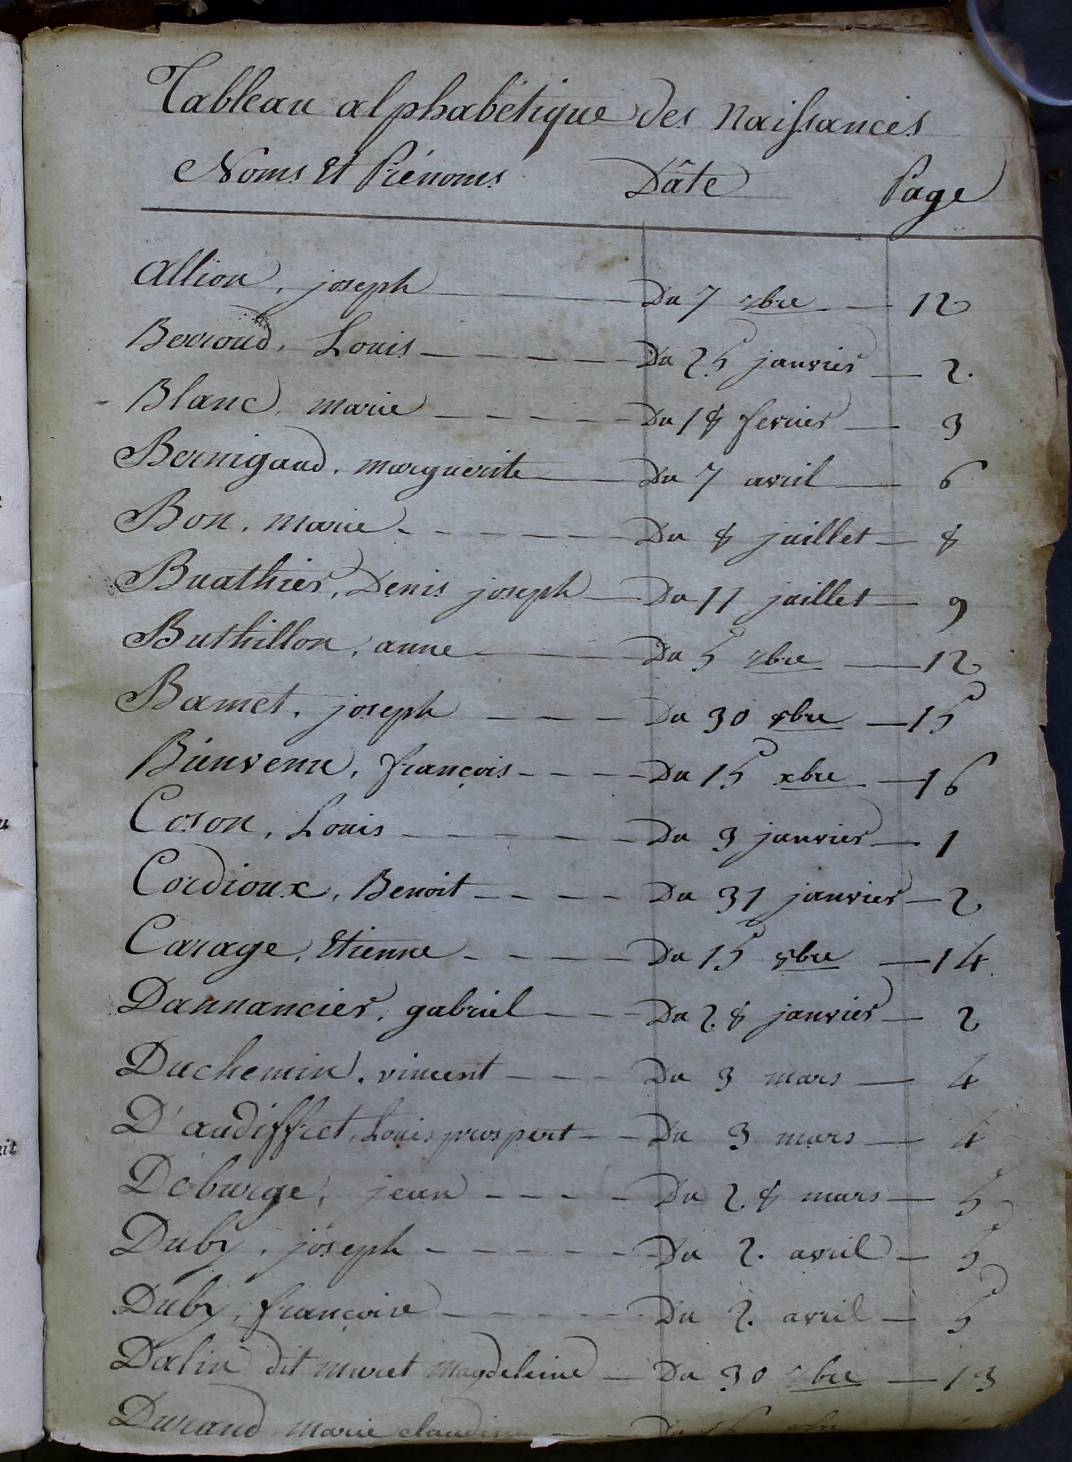 Tableau alphabétique des Naissances
Noms Et Prénoms Dâte Page
Allion, joseph Du 7 7bre 12
Berroud, Louis Du 25 janvier 2.
Blanc, marie Du 18 fevrier 3
Bernigaud, marguerite Du 7 avril 6
Bon, marie Du 8 juillet 8
Buathier, Denis joseph Du 11 juillet 9
Buthillon, anne Du 5 7bre 12
Bamet, joseph Du 30 8bre 15
Bienvenu, françois Du 15 xbre 16
Coson, Louis Du 3 janvier 1
Cordioux, Benoit Du 31 janvier 2
Carage, Etienne Du 15 8bre 14
Dannancier, gabriel Du 28 janvier 2
Duchemin, vincent Du 3 mars 4
D'audiffret, Louis prospert Du 3 mars 4
Deburge, jean Du 28 mars 5
Duby, joseph Du 2. avril 5
Duby, françoise Du 2. avril 5
Dalin dit muret Magdeleine Du 30 7bre 13
Durand marie claudine Du 16